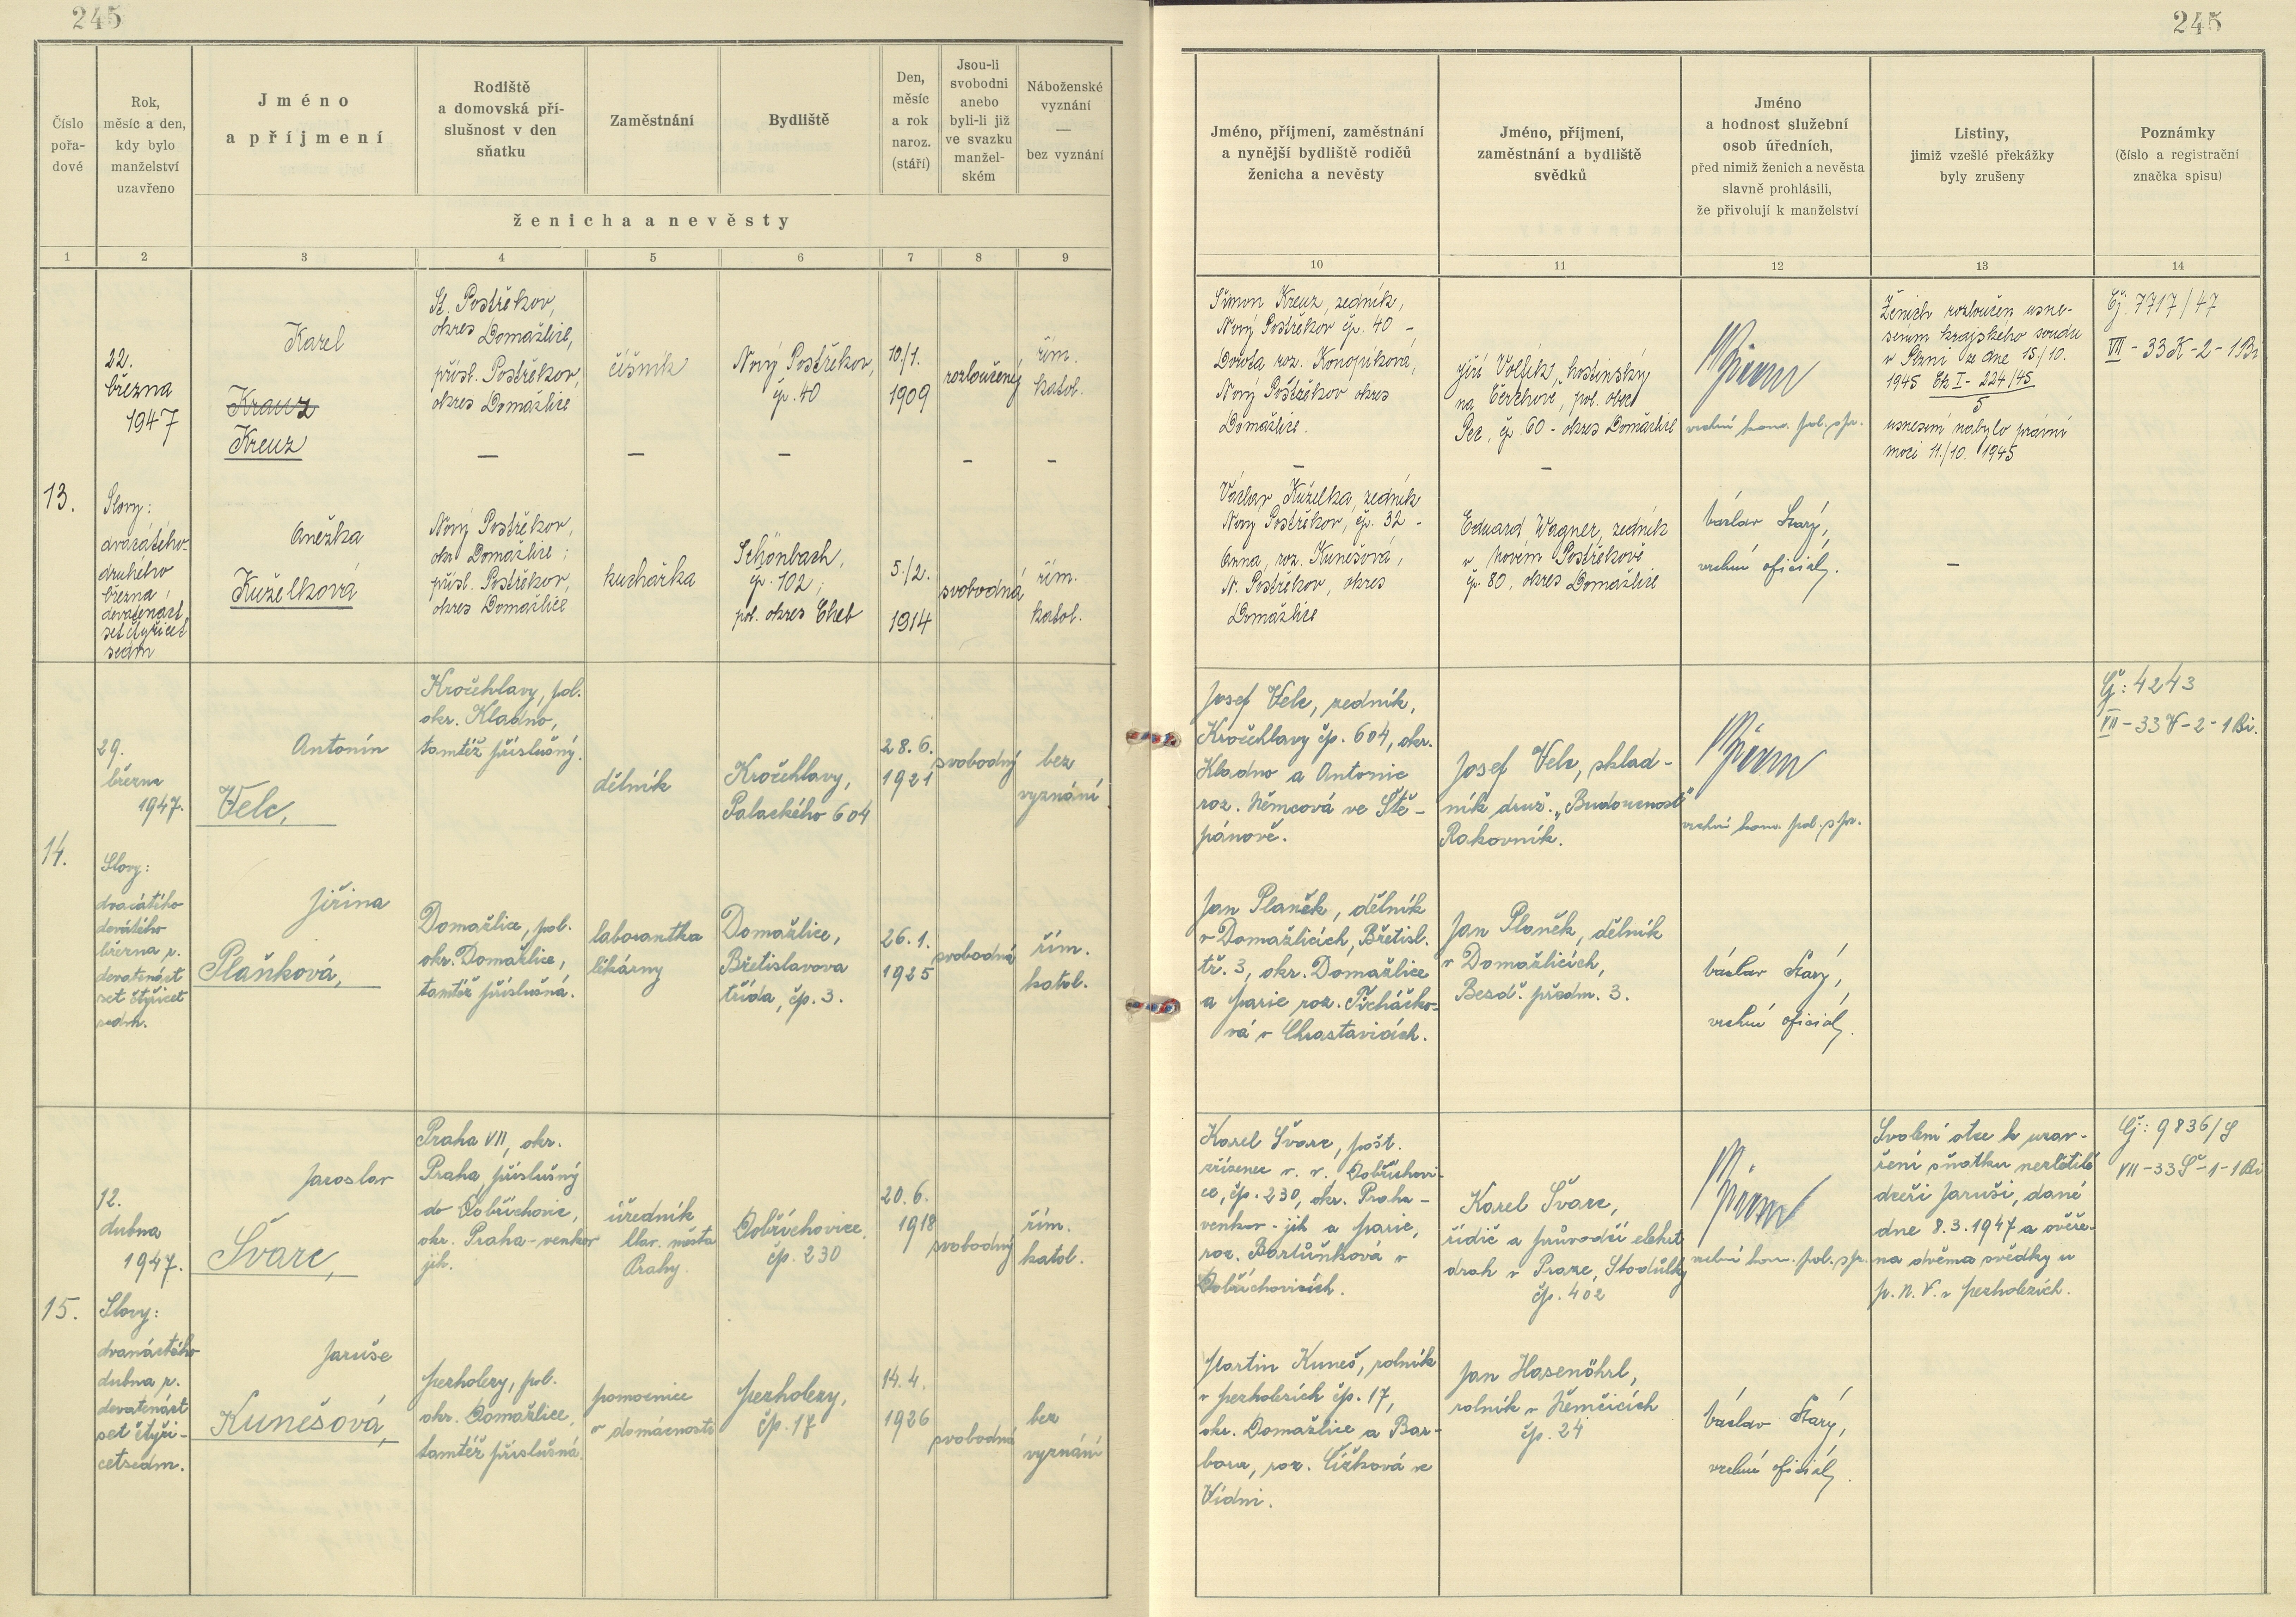 245
245
Číslo
pořa-
dové
Rok,
měsíc a den,
kdy bylo
manželství
uzavřeno
Jméno
a příjmení
Rodiště
a domovská pří-
slušnost v den
sňatku
Zaměstnání
Bydliště
Den,
měsíc
a rok
naroz.
(stáří)
Jsou-li
svobodni
anebo
byli-li již
ve svazku
manžel-
ském
Náboženské
vyznání
—
bez vyznání
ženicha a nevěsty
Jméno, příjmení, zaměstnání
a nynější bydliště rodičů
ženicha a nevěsty
Jméno, příjmení,
zaměstnání a bydliště
svědků
Jméno
a hodnost služební
osob úředních,
před nimiž ženich a nevěsta
slavně prohlásili,
že přivolují k manželství
Listiny,
jimiž vzešlé překážky
byly zrušeny
Poznámky
(číslo a registrační
značka spisu)
1 2 3 4 5 6 7 8 9
10 11 12 13 14
13.
22.
března
1947
Slovy:
dvacátého-
druhého
března
devatenáct
set čtyřicet
sedm
Karel
Krauz
Kreuz
St. Postřekov,
okres Domažlice,
přísl. Postřekov,
okres Domažlice
—
číšník
—
Nový Postřekov,
čp. 40
—
10./1.
1909
rozloučený
—
řím.
katol.
—
Anežka
Kuželková
Nový Postřekov,
okr. Domažlice;
přísl. Postřekov,
okres Domažlice
kuchařka
Schönbach,
čp. 102;
pol. okres Cheb
5./2.
1914
svobodná
řím.
katol.
Šimon Kreuz, zedník,
Nový Postřekov čp. 40 -
Dorota roz. Konopíková,
Nový Postřekov okres
Domažlice.
—
Václav Kuželka, zedník
Nový Postřekov, čp. 32 -
Anna, roz. Kunešová,
N. Postřekov, okres
Domažlice
Jiří Volfík, hostinský
na Čerchově, pol. obec
Pec, čp. 60 - okres Domažlice
—
Eduard Wagner, zedník
v Novém Postřekově
čp. 80, okres Domažlice
vrchní kom. pol. spr.
Václav Starý,
vrchní oficiál.
Ženich rozloučen usne-
sením krajského soudu
v Plzni ze dne 15./10.
1945 Ck I - 224/45
5
usnesení nabylo právní
moci 11./10. 1945
—
Čj. 7717/47
VII - 33K - 2 - 1 Bi
14.
29.
března
1947.
Slovy:
dvacátého
devátého
března r.
devatenáct
set čtyřicet
sedm.
Antonín
Velc,
Kročehlavy, pol.
okr. Kladno,
tamtéž příslušný.
dělník
Kročehlavy,
Palackého 604
28. 6.
1921
svobodný
bez
vyznání
Jiřina
Plaňková,
Domažlice, pol.
okr. Domažlice,
tamtéž příslušná.
laborantka
lékárny
Domažlice,
Břetislavova
třída, čp. 3.
26. 1.
1925
svobodná
řím.
katol.
Josef Velc, zedník,
Kročehlavy čp. 604, okr.
Kladno a Antonie
roz. Němcová ve Ště-
pánově.
Jan Planěk, dělník
v Domažlicích, Břetisl.
tř. 3, okr. Domažlice
a Marie roz. Picháčko-
vá v Chrastavicích.
Josef Velc, sklad-
ník druž. „Budoucnost"
Rakovník.
Jan Planěk, dělník
v Domažlicích,
Bezd. předm. 3.
vrchní kom. pol. spr.
Václav Starý,
vrchní oficiál.
Čj: 4243
VII - 33 V - 2 - 1 Bi.
15.
12.
dubna
1947.
Slovy:
dvanáctého
dubna r.
devatenáct
set čtyři-
cetsedm.
Jaroslav
Švarc,
Praha VII, okr.
Praha, příslušný
do Dobřichovic,
okr. Praha-venkov
jih.
úředník
hlav. města
Prahy.
Dobřichovice,
čp. 230
20. 6.
1918
svobodný
řím.
katol.
Jaruše
Kunešová,
Mezholezy, pol.
okr. Domažlice,
tamtéž příslušná.
pomocnice
v domácnosti
Mezholezy,
čp. 17
14. 4.
1926
svobodná
bez
vyznání
Karel Švarc, pošt.
zřízenec v. v. Dobřichovi-
ce, čp. 230, okr. Praha -
venkov - jih a Marie,
roz. Bartůňková v
Dobřichovicích.
Martin Kuneš, rolník
v Mezholezích čp. 17,
okr. Domažlice a Bar-
bora, roz. Čížková ve
Vídni.
Karel Švarc,
řidič a průvodčí elektr.
drah v Praze, Stodůlky
čp. 402
Jan Hasenöhrl,
rolník v Němčicích
čp. 24
vrchní kom. pol. spr.
Václav Starý,
vrchní oficiál.
Svolení otce k uzav-
ření sňatku nezletilé
dceři Jaruši, dané
dne 8. 3. 1947 a ověře-
na dvěma svědky u
M. N. V. v Mezholezích.
Čj: 9836/S
VII - 33 Š - 1 - 1 Bi